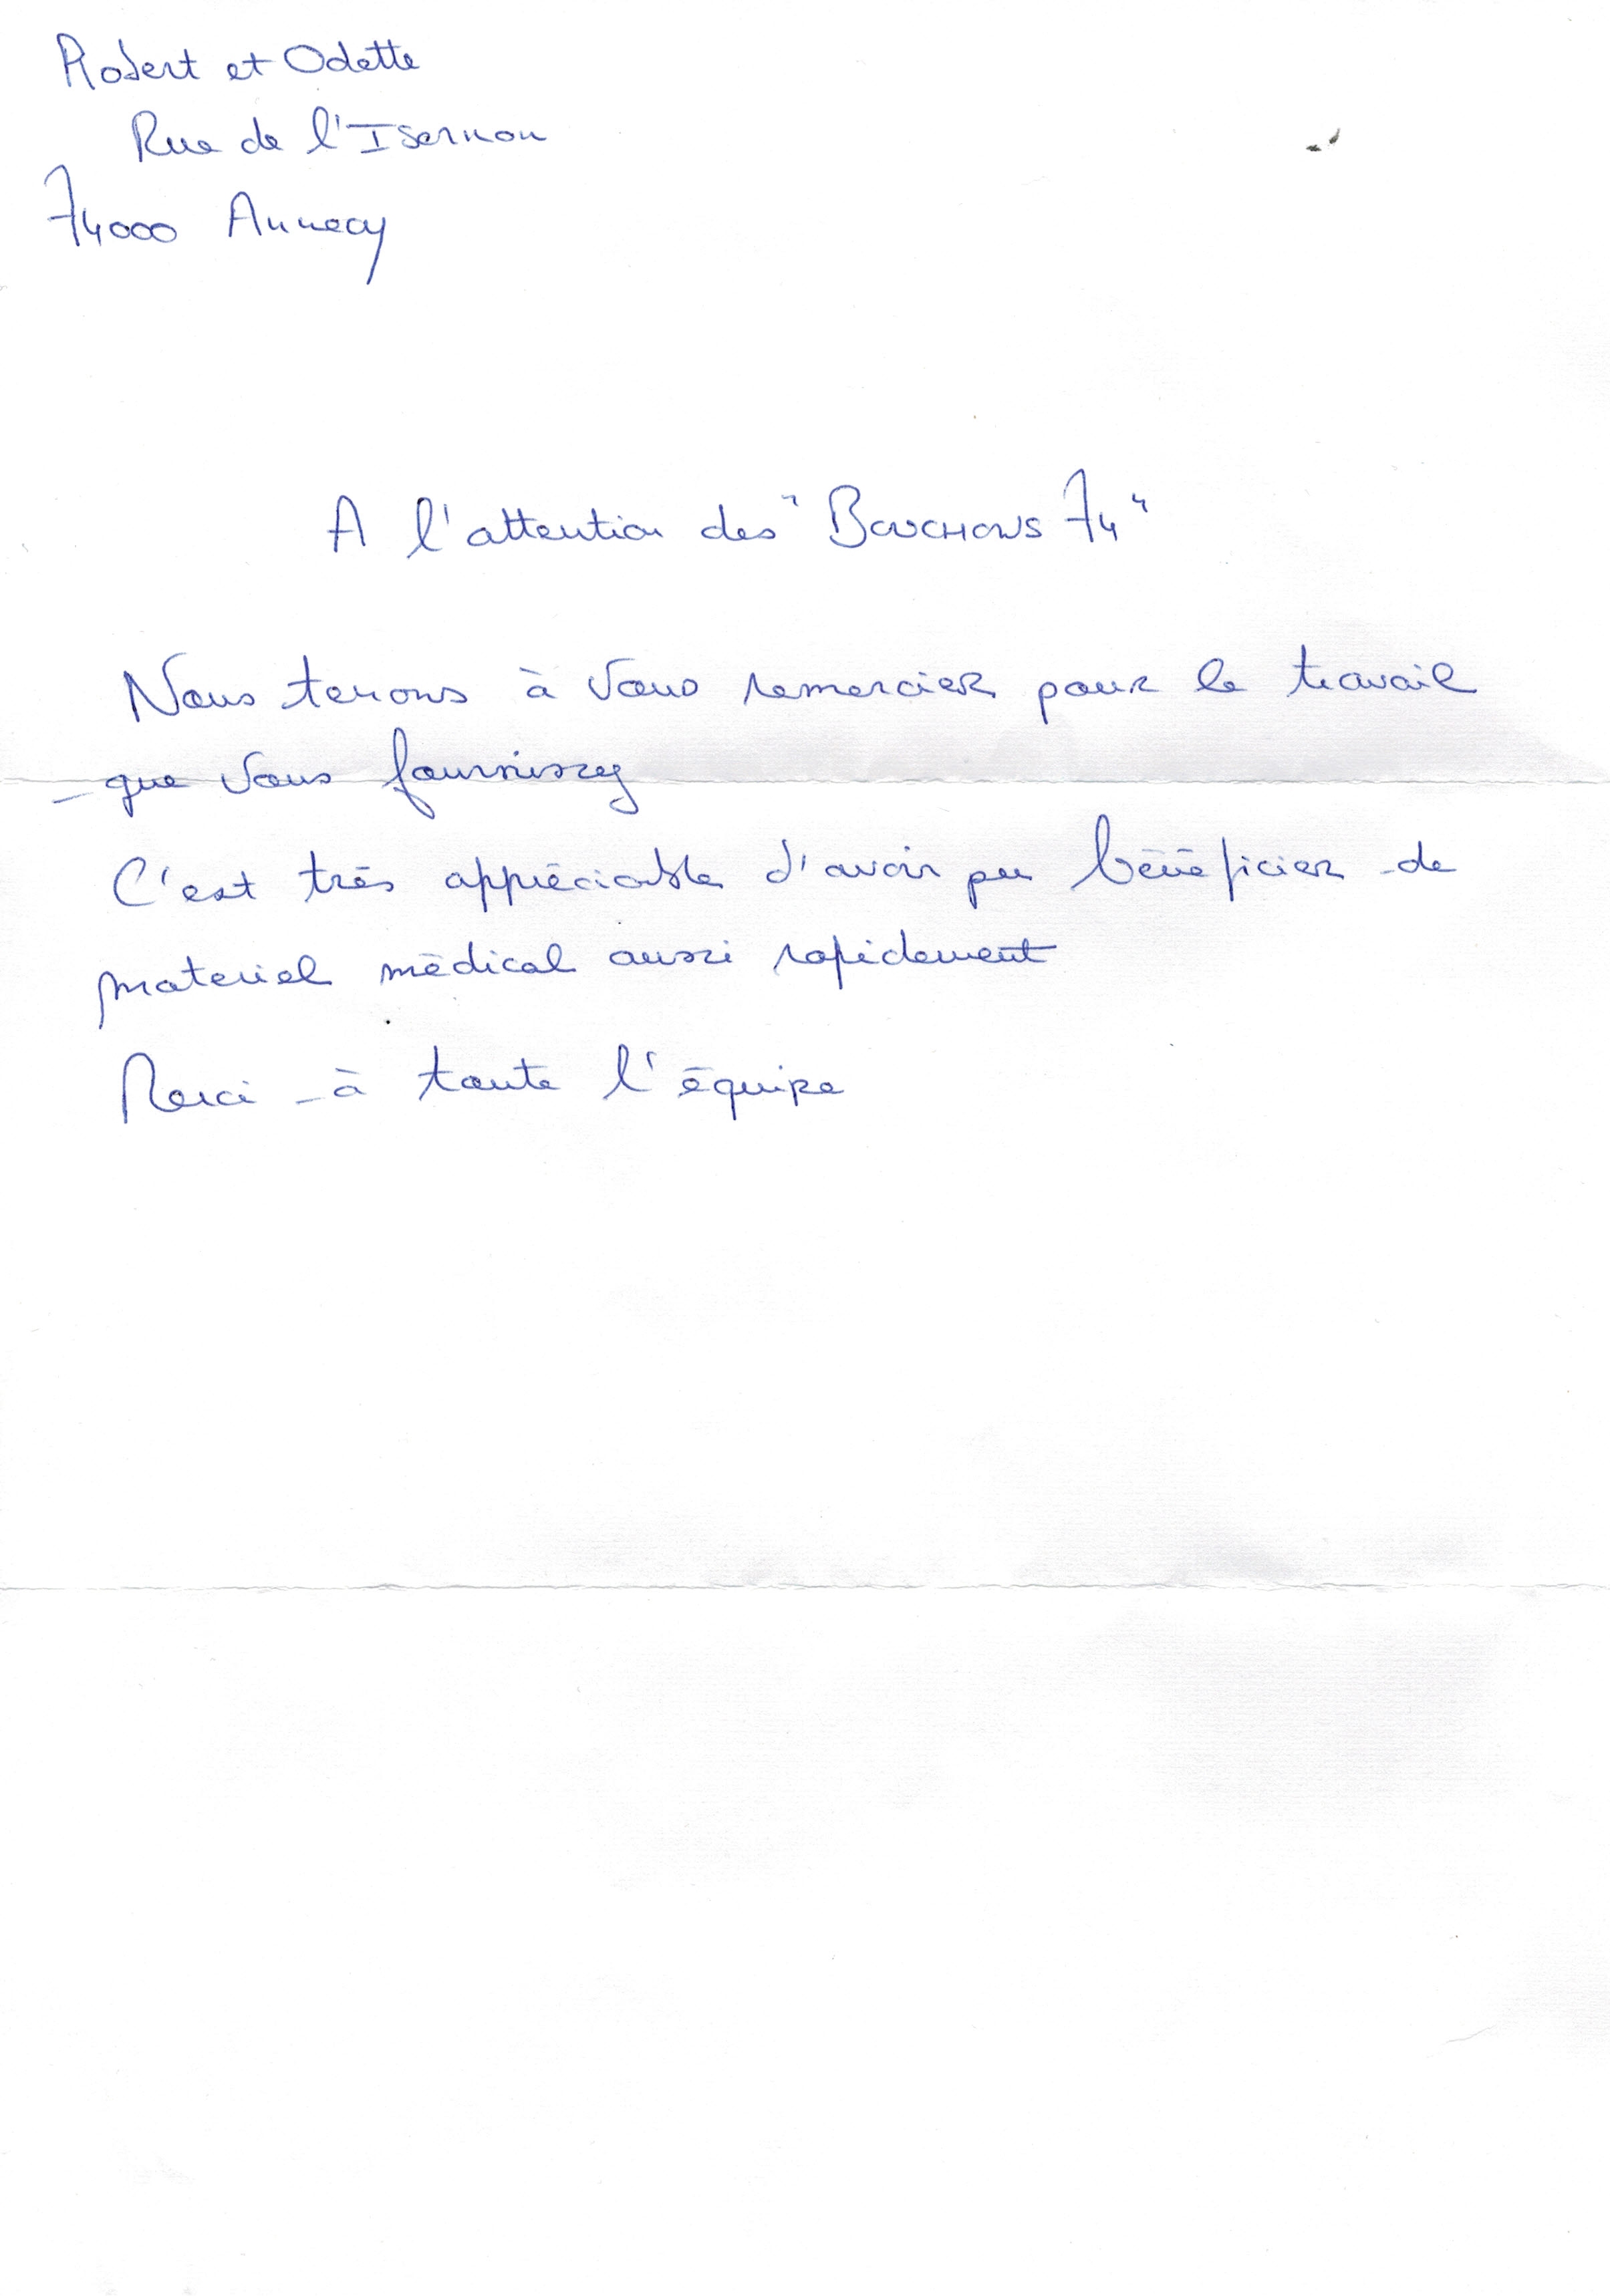 Robert et Odette
Rue de l'Isernon
74000 Annecy
A l'attention des "Bouchons 74"
Nous tenons à vous remercier pour le travail
que vous fournissez
C'est très appréciable d'avoir pu bénéficier de
materiel médical aussi rapidement
Merci à toute l'équipe